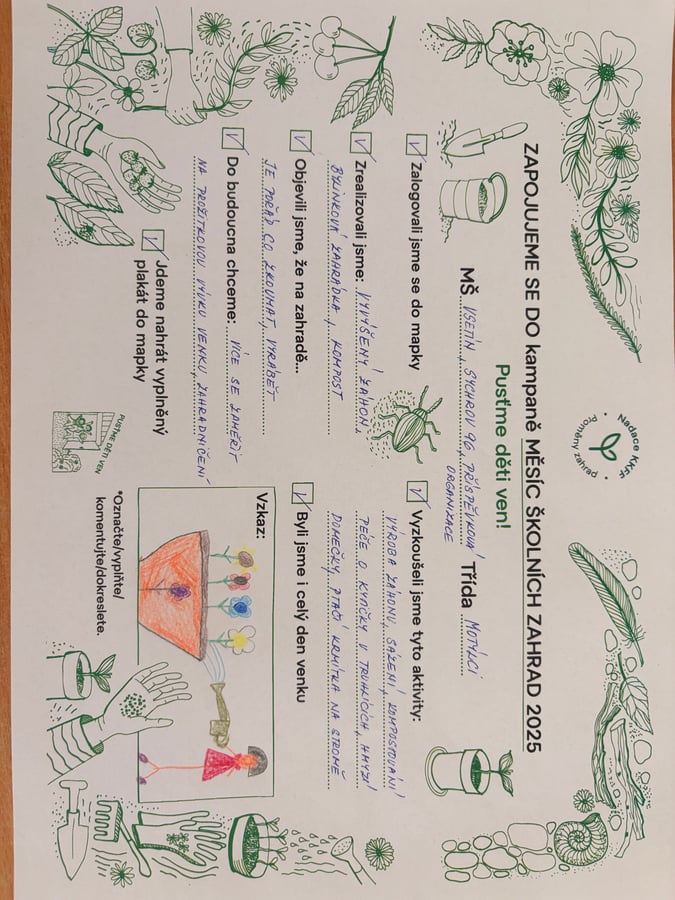 Nadace KKFF
Proměny zahrad
ZAPOJUJEME SE DO kampaně MĚSÍC ŠKOLNÍCH ZAHRAD 2025
Pusťme děti ven!
MŠ VSETÍN, SYCHROV 96, PŘÍSPĚVKOVÁ Třída MOTÝLCI
ORGANIZACE
Zalogovali jsme se do mapky
Zrealizovali jsme: VYVÝŠENÝ ZÁHON,
BYLINKOVÁ ZAHRÁDKA, KOMPOST
Objevili jsme, že na zahradě...
JE POŘÁD CO ZKOUMAT, VYRÁBĚT
Do budoucna chceme: VÍCE SE ZAMĚŘIT
NA PROŽITKOVOU VÝUKU VENKU, ZAHRADNIČENÍ
Jdeme nahrát vyplněný
plakát do mapky
PUSŤME DĚTI VEN
Vyzkoušeli jsme tyto aktivity:
VÝROBA ZÁHONU, SÁZENÍ, KOMPOSTOVÁNÍ
PÉČE O KYTIČKY V TRUHLÍCÍCH, HMYZÍ
DOMEČKY, PTAČÍ KRMÍTKA NA STROMĚ
Byli jsme i celý den venku
Vzkaz:
*Označte/vyplňte/
komentujte/dokreslete.